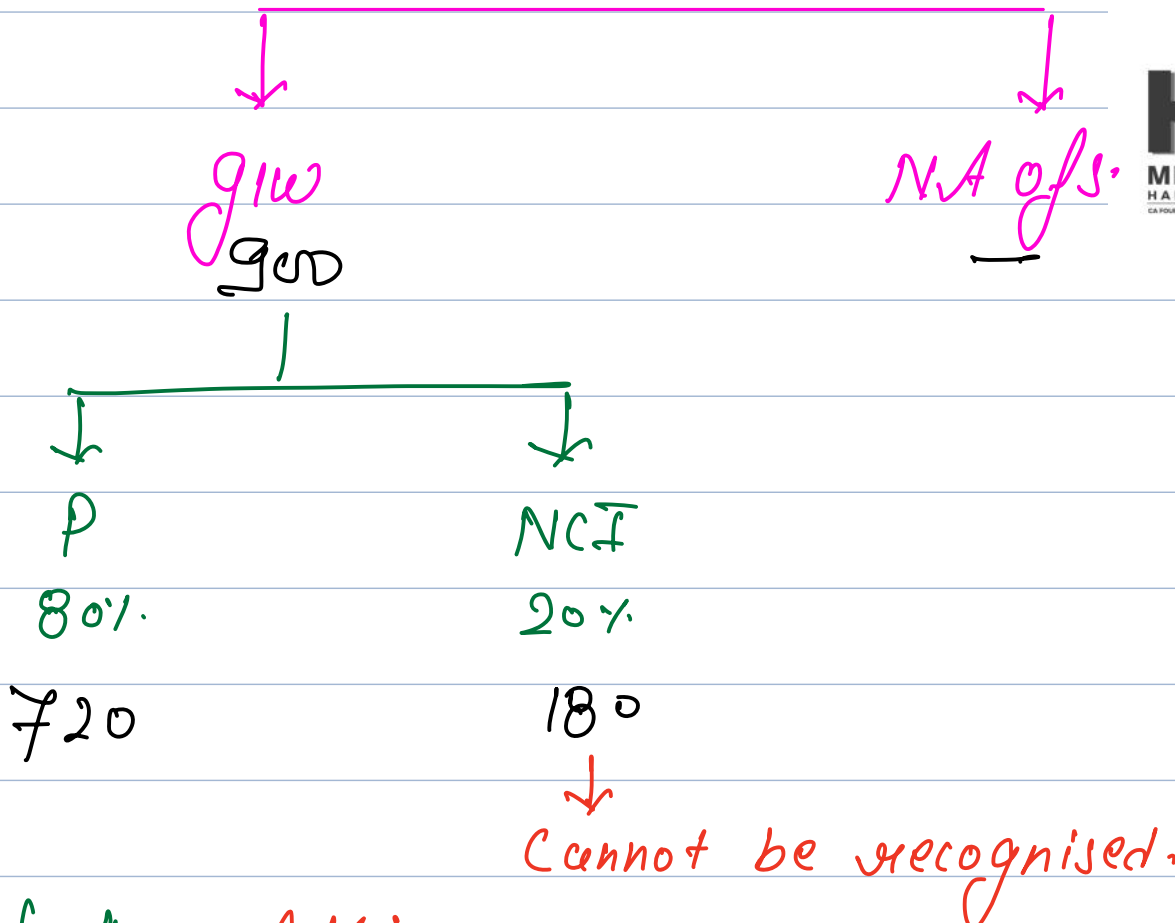 g/w NA of S.
900
P NCI
80%. 20%
720 180
Cannot be recognised.